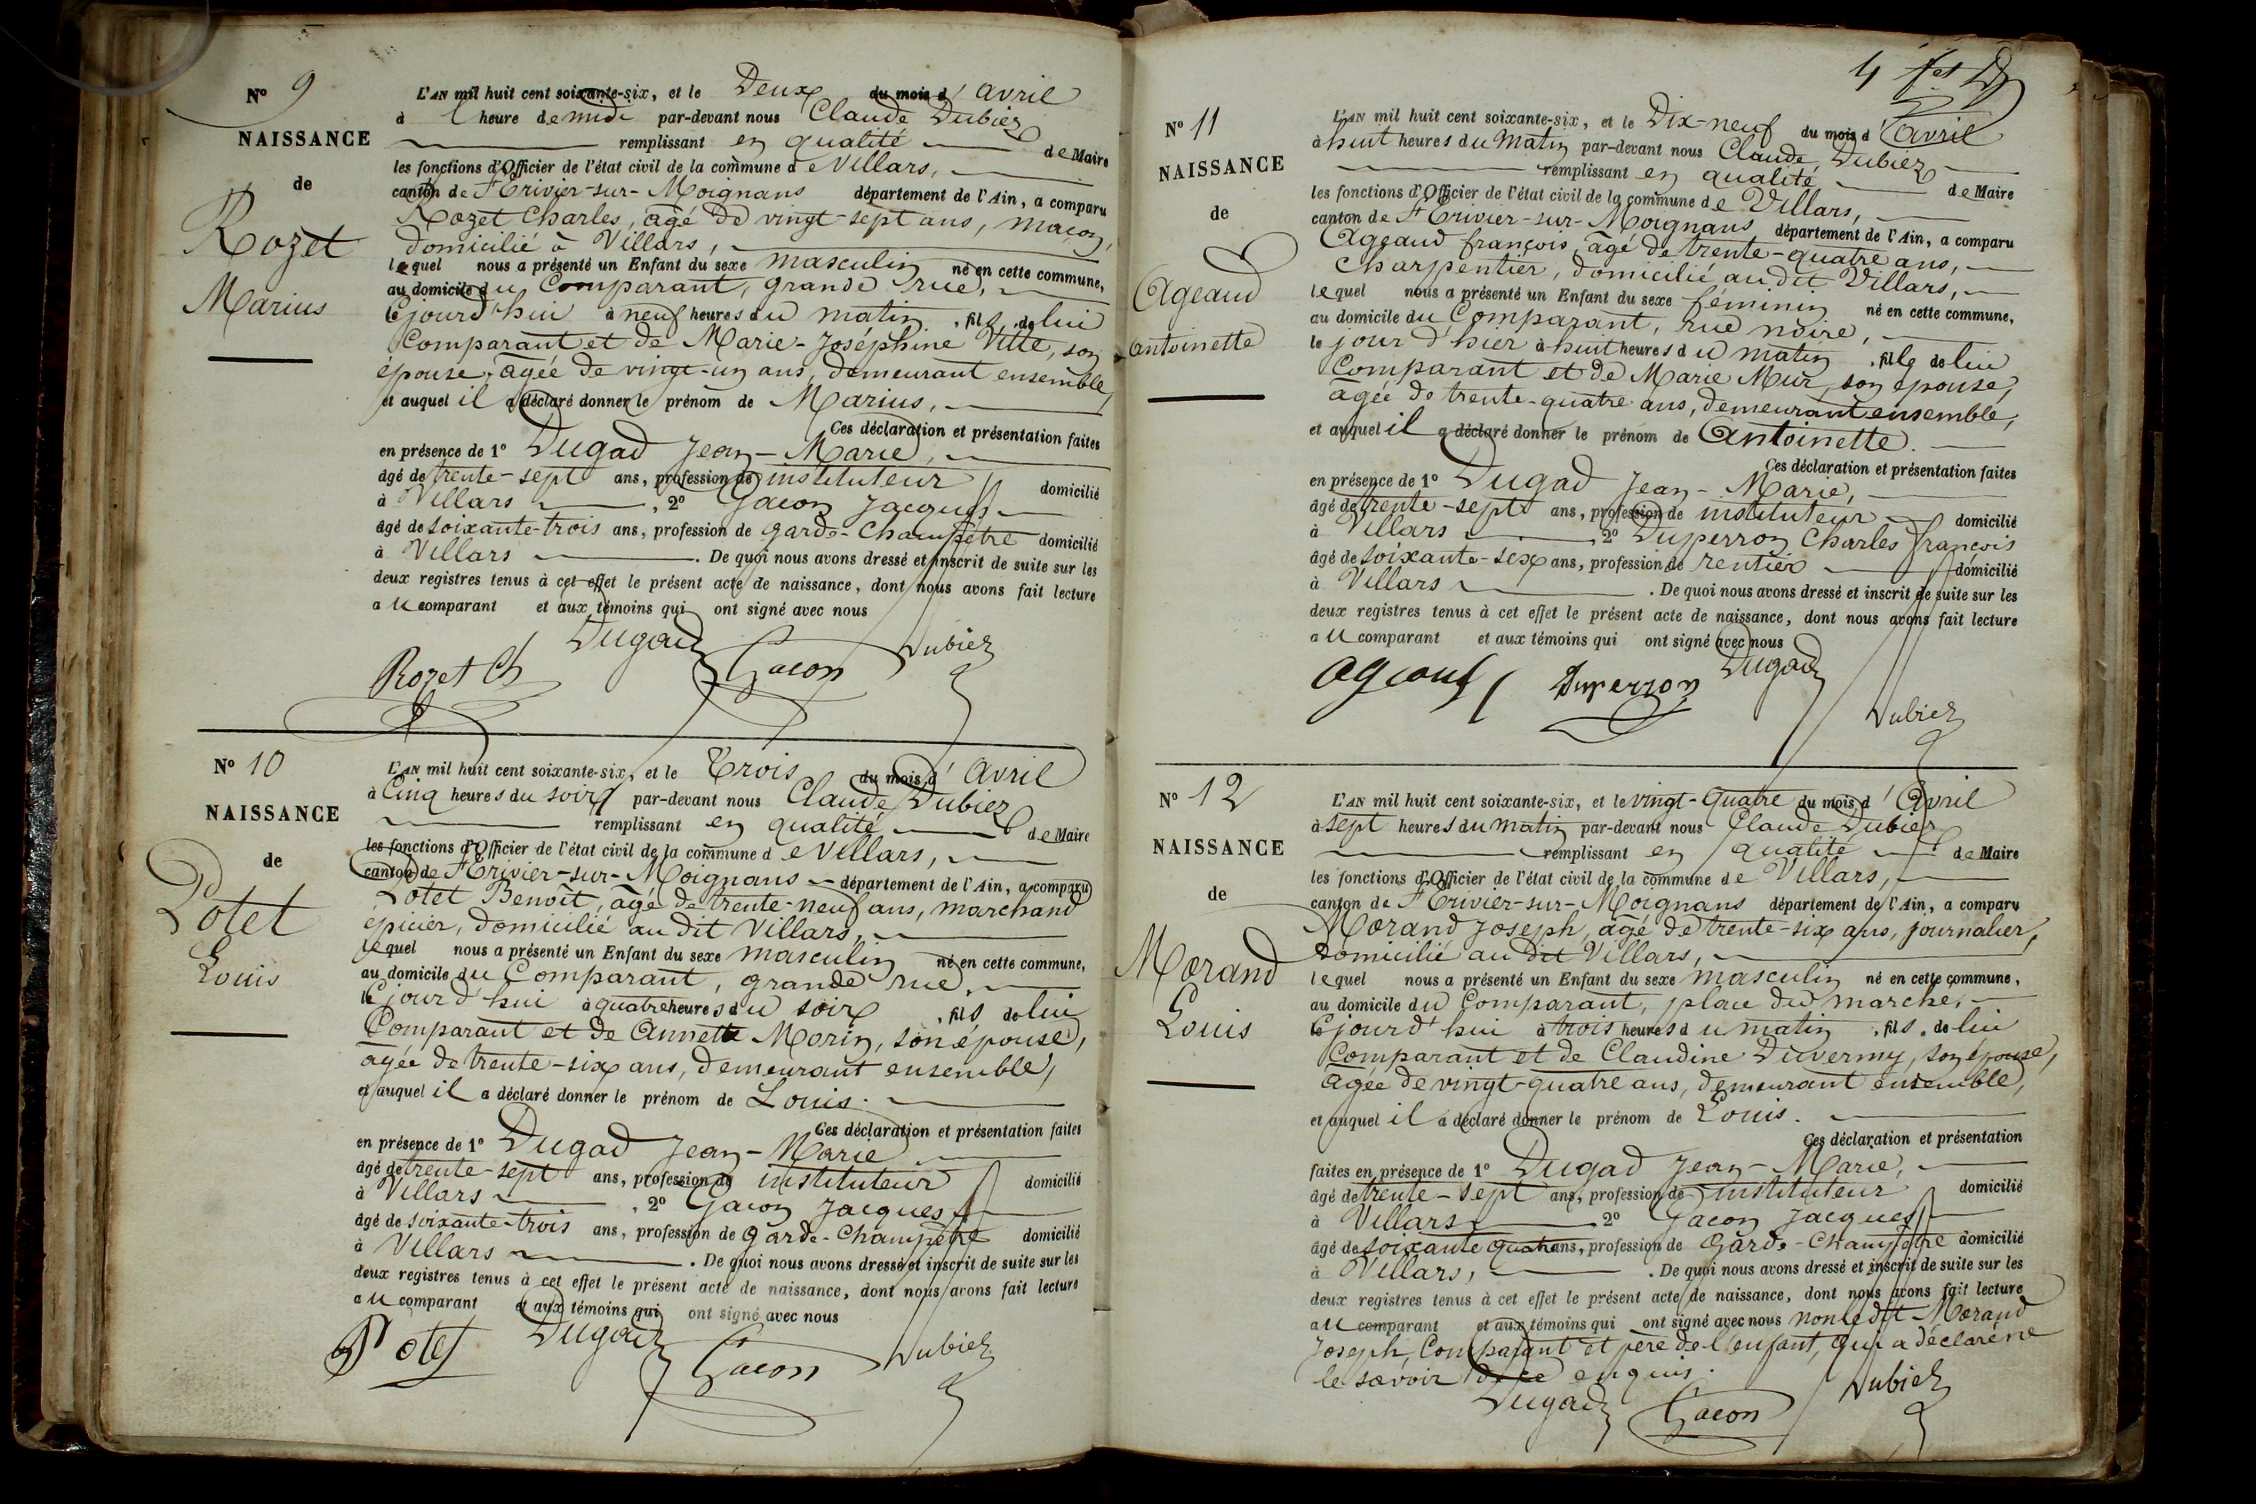 N° 9
NAISSANCE
de
Rozet
Marius
L'AN mil huit cent soixante-six, et le Deux du mois d'avril
à l'heure de midi par-devant nous Claude Dubiez
remplissant en qualité de Maire
les fonctions d'Officier de l'état civil de la commune de Villars,
canton de St Trivier-sur-Moignans département de l'Ain, a comparu
Rozet Charles, âgé de vingt-sept ans, maçon,
domicilié à Villars,
lequel nous a présenté un Enfant du sexe masculin né en cette commune,
au domicile du Comparant, grande rue,
cejourd'hui à neuf heures du matin, fils de lui
Comparant et de Marie-Joséphine Vitte, son
épouse, âgée de vingt-un ans, demeurant ensemble,
et auquel il a déclaré donner le prénom de Marius,
Ces déclaration et présentation faites
en présence de 1° Dugad Jean-Marie,
âgé de trente-sept ans, profession de instituteur domicilié
à Villars, 2° Gacon Jacques
âgé de soixante-trois ans, profession de garde-Champêtre domicilié
à Villars. De quoi nous avons dressé et inscrit de suite sur les
deux registres tenus à cet effet le présent acte de naissance, dont nous avons fait lecture
au comparant et aux témoins qui ont signé avec nous
Dugad Dubiez
Rozet Ch Gacon
N° 10
NAISSANCE
de
Potet
Louis
L'AN mil huit cent soixante-six, et le Trois du mois d'avril
à Cinq heures du soir par-devant nous Claude Dubiez
remplissant en qualité de Maire
les fonctions d'Officier de l'état civil de la commune de Villars,
canton de St Trivier-sur-Moignans département de l'Ain, a comparu
Potet Benoît, âgé de trente-neuf ans, marchand
épicier, domicilié au dit Villars,
lequel nous a présenté un Enfant du sexe masculin né en cette commune,
au domicile du Comparant, grande rue,
cejourd'hui à quatre heures du soir, fils de lui
Comparant et de Annette Morin, son épouse,
âgée de trente-six ans, demeurant ensemble,
et auquel il a déclaré donner le prénom de Louis.
Ces déclaration et présentation faites
en présence de 1° Dugad Jean-Marie
âgé de trente-sept ans, profession de instituteur domicilié
à Villars, 2° Gacon Jacques
âgé de soixante-trois ans, profession de garde-Champêtre domicilié
à Villars. De quoi nous avons dressé et inscrit de suite sur les
deux registres tenus à cet effet le présent acte de naissance, dont nous avons fait lecture
au comparant et aux témoins qui ont signé avec nous
Potet Dugad Gacon Dubiez
4
N° 11
NAISSANCE
de
Ageaud
Antoinette
L'AN mil huit cent soixante-six, et le Dix-neuf du mois d'Avril
à huit heures du matin par-devant nous Claude Dubiez
remplissant en qualité de Maire
les fonctions d'Officier de l'état civil de la commune de Villars,
canton de St Trivier-sur-Moignans département de l'Ain, a comparu
Ageaud françois, âgé de trente-quatre ans,
Charpentier, domicilié au dit Villars,
lequel nous a présenté un Enfant du sexe féminin né en cette commune,
au domicile du Comparant, rue noire,
le jour d'hier à huit heures du matin, fille de lui
Comparant et de Marie Mur, son épouse,
âgée de trente-quatre ans, demeurant ensemble,
et auquel il a déclaré donner le prénom de Antoinette.
Ces déclaration et présentation faites
en présence de 1° Dugad Jean-Marie,
âgé de trente-sept ans, profession de instituteur domicilié
à Villars 2° Duperron Charles françois
âgé de soixante-six ans, profession de rentier domicilié
à Villars. De quoi nous avons dressé et inscrit de suite sur les
deux registres tenus à cet effet le présent acte de naissance, dont nous avons fait lecture
au comparant et aux témoins qui ont signé avec nous
Ageaud Duperron Dugad
Dubiez
N° 12
NAISSANCE
de
Morand
Louis
L'AN mil huit cent soixante-six, et le vingt-quatre du mois d'Avril
à sept heures du matin par-devant nous Claude Dubiez
remplissant en qualité de Maire
les fonctions d'Officier de l'état civil de la commune de Villars,
canton de St Trivier-sur-Moignans département de l'Ain, a comparu
Morand Joseph, âgé de trente-six ans, journalier,
domicilié au dit Villars,
lequel nous a présenté un Enfant du sexe masculin né en cette commune,
au domicile du Comparant, place du marché,
cejourd'hui à trois heures du matin, fils de lui
Comparant et de Claudine Duverny, son épouse,
âgée de vingt-quatre ans, demeurant ensemble,
et auquel il a déclaré donner le prénom de Louis.
Ces déclaration et présentation
faites en présence de 1° Dugad Jean-Marie,
âgé de trente-sept ans, profession de instituteur domicilié
à Villars 2° Gacon Jacques
âgé de soixante quatre ans, profession de Garde-Champêtre domicilié
à Villars, . De quoi nous avons dressé et inscrit de suite sur les
deux registres tenus à cet effet le présent acte de naissance, dont nous avons fait lecture
au comparant et aux témoins qui ont signé avec nous non le dit Morand
Joseph, Comparant et père de l'enfant, qui a déclaré ne
le savoir de ce enquis.
Dugad Gacon Dubiez